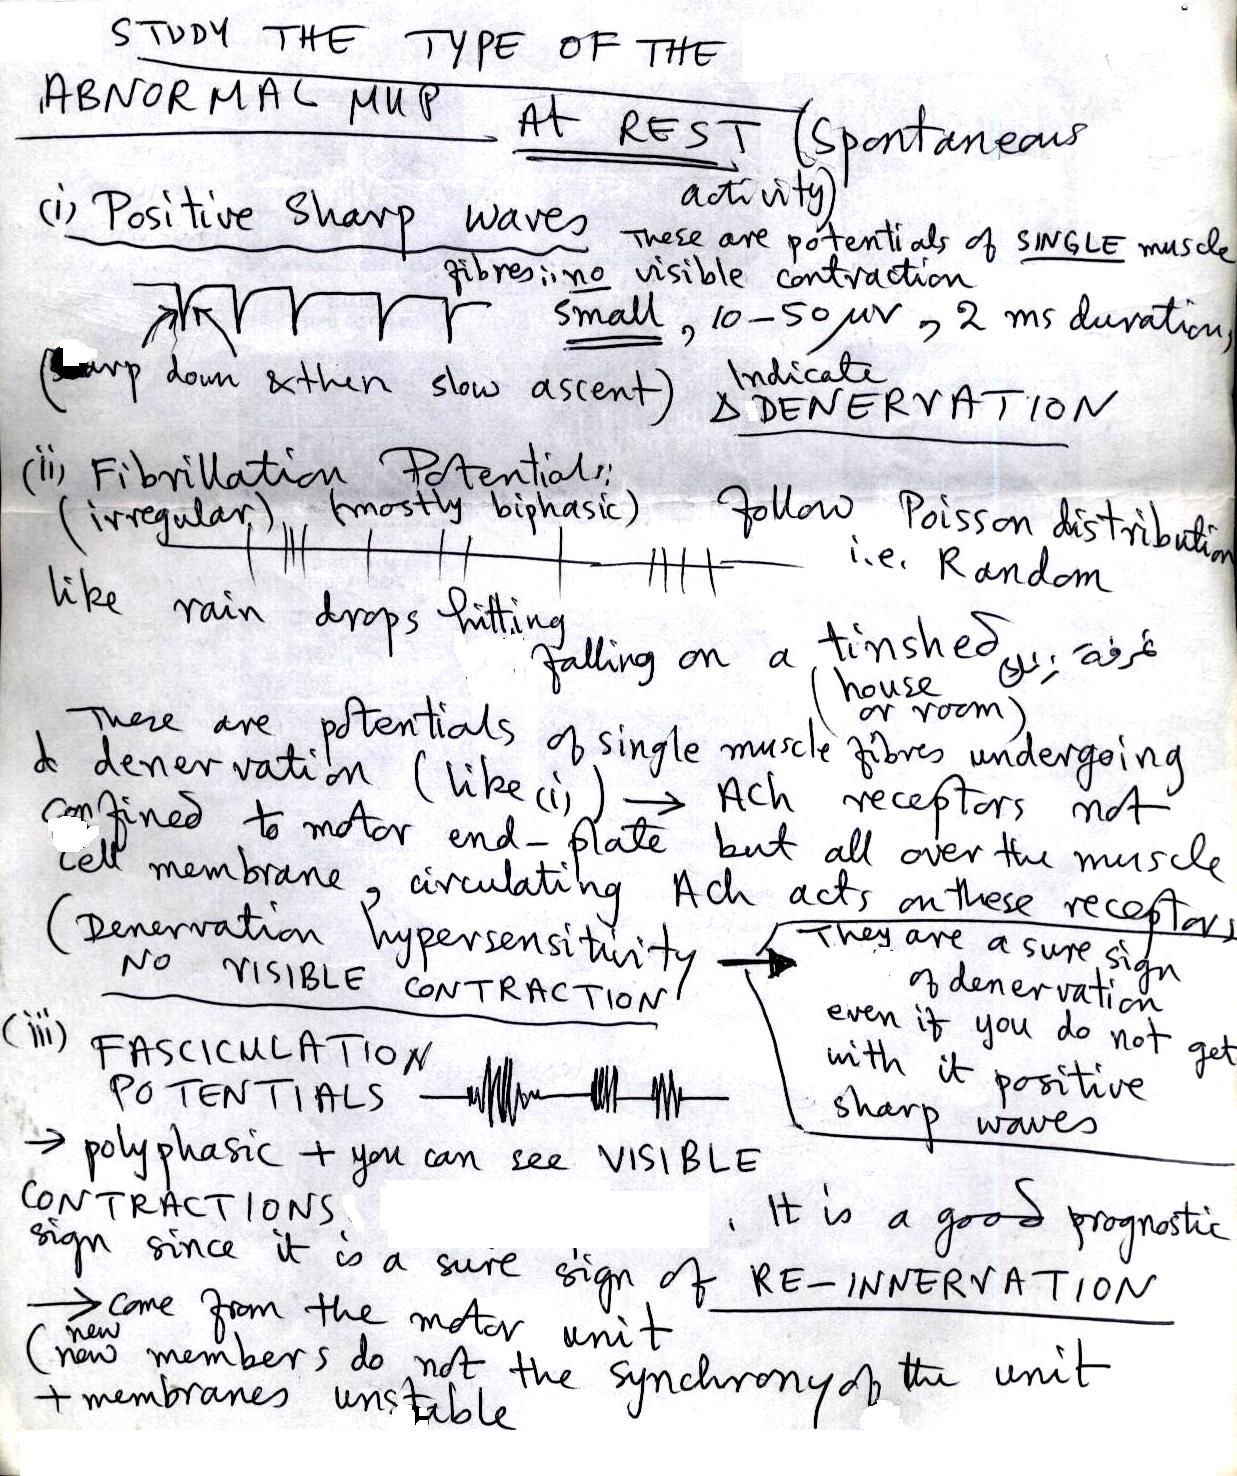 STUDY THE TYPE OF THE
ABNORMAL MUP At REST (Spontaneous
activity)
(i) Positive Sharp waves These are potentials of SINGLE muscle
fibres ∴ no visible contraction
Small, 10-50 μv, 2 ms duration,
(sharp down & then slow ascent) Indicate
DENERVATION
(ii) Fibrillation Potentials:
(irregular) (mostly biphasic) follow Poisson distribution
i.e. Random
like rain drops hitting
falling on a tinshed غرفة زنك
(house
or room)
These are potentials of single muscle fibres undergoing
denervation (like (i)) → ACh receptors not
confined to motor end-plate but all over the muscle
cell membrane, circulating ACh acts on these receptors
(Denervation hypersensitivity
NO VISIBLE CONTRACTION)
They are a sure sign
of denervation
even if you do not get
with it positive
sharp waves
(iii) FASCICULATION
POTENTIALS
→ polyphasic + you can see VISIBLE
CONTRACTIONS. It is a good prognostic
sign since it is a sure sign of RE-INNERVATION
→ come from the motor unit
new
(new members do not the synchrony of the unit
+ membranes unstable